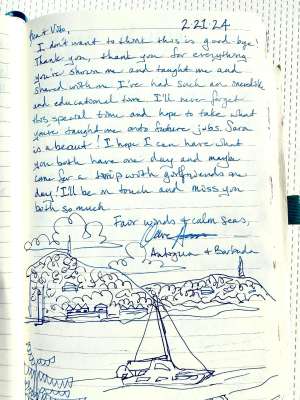 2.21.24
I don't want to think this is good-bye!
Thank you, thank you for everything
you've shown me and taught me and
shared with me I've had such an incredible
and educational time I'll never forget
this special time and hope to take what
you've taught me onto future jobs. Sara
is a beaut! I hope I can have what
you both have one day and maybe
come for a trip with girlfriends one
day! I'll be in touch and miss you
both so much
Fair winds & calm seas,
Antigua & Barbuda